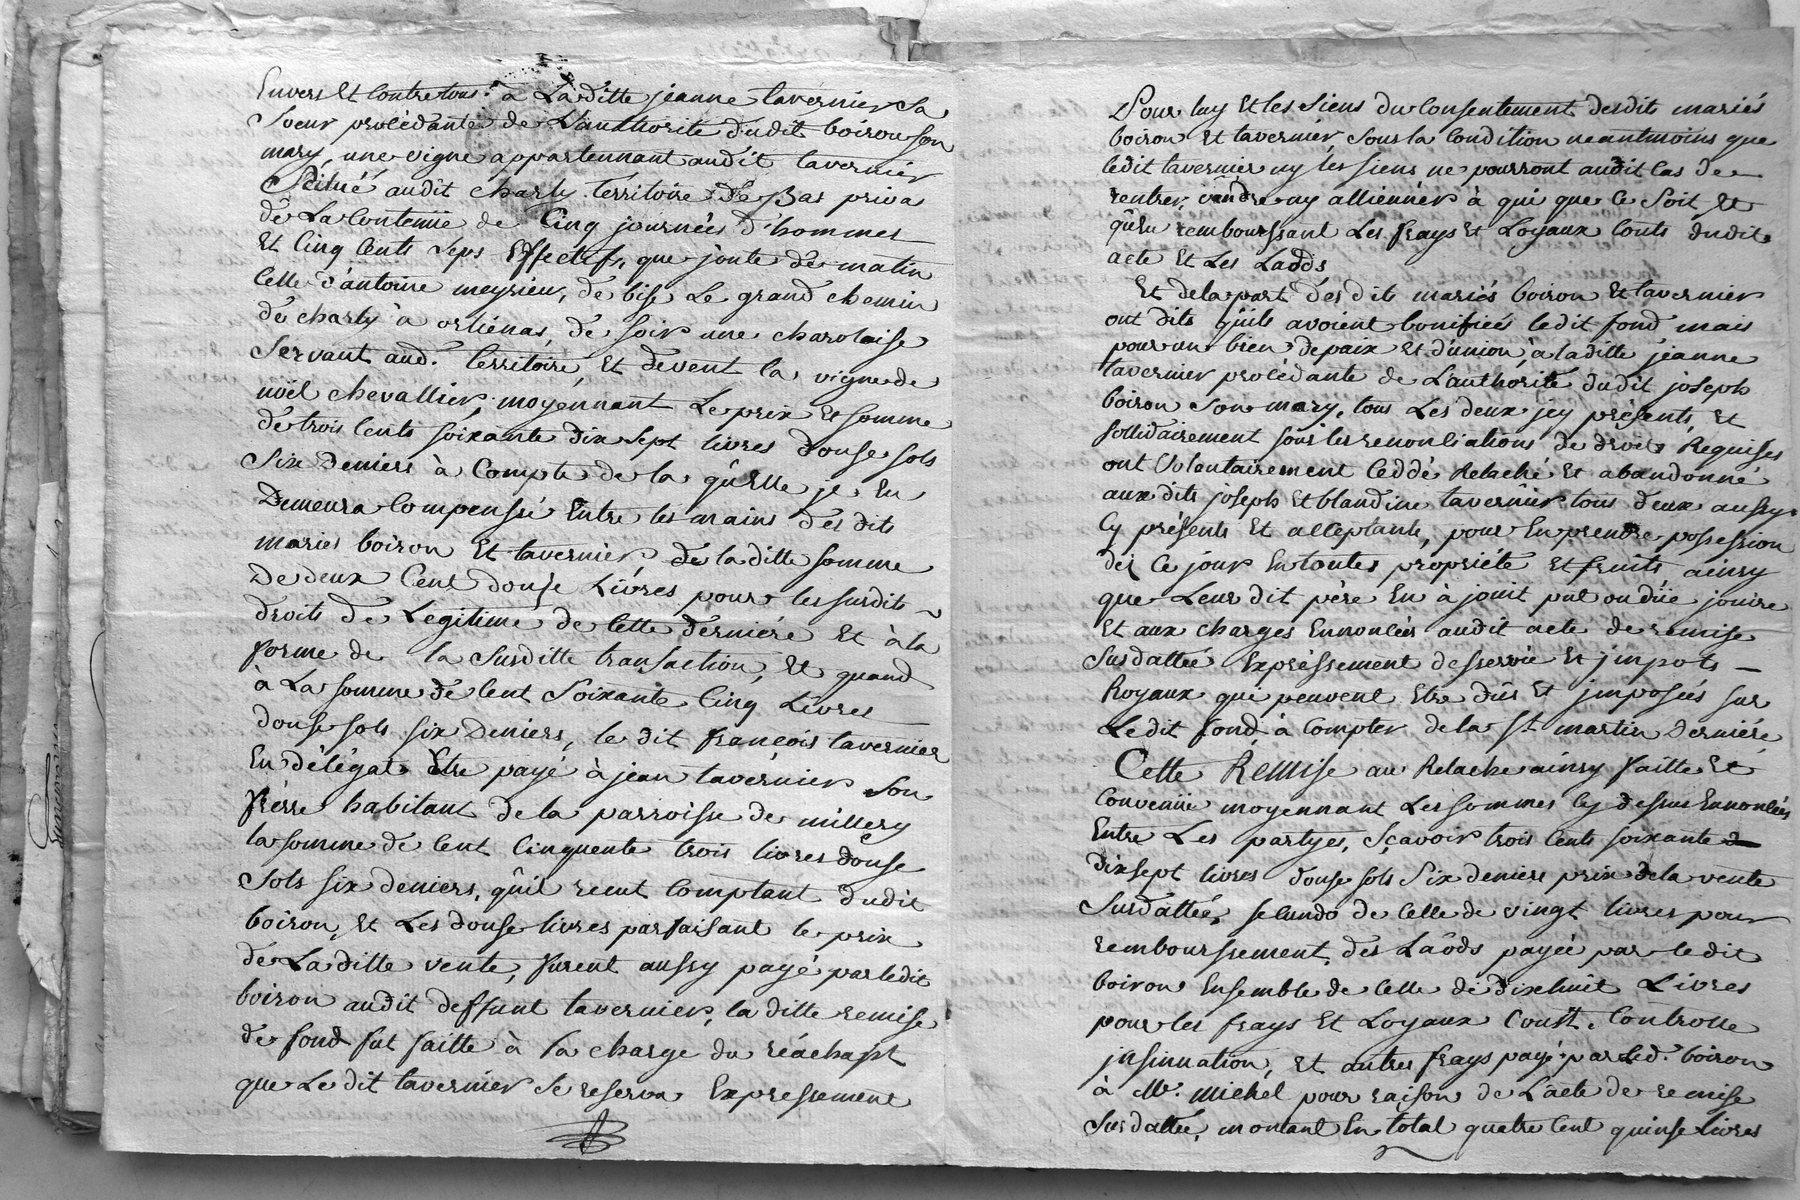 Envers Et Contre tous. à La ditte jeanne tavernier sa
Soeur procédante de L'authorité dudit boiron son
mary, une vigne appartennant audit tavernier
Scitué audit charly territoire de Bas priva
de La Contenüe de Cinq journées d'hommes
Et Cinq Cents seps Effectif, que joute de matin
Celle d'antoine meyrieu, de bise Le grand chemin
de charly à orliénas, de soir une charolaise
Servant aud. territoire, Et devent la vigne de
noël chevallier moyennant Le prix Et somme
de trois Cents soixante dix sept livres douse sols
Six Deniers à Compte de la qu'Elle je En
Demeura Compenssé Entre les mains des dits
mariés boiron Et tavernier, de la ditte somme
De deux Cent douse Livres pour les susdits
droits de Legitime de Cette derniére Et à la
forme de la susditte transaction, Et quand
à La somme de Cent Soixante Cinq Livres
douse sols six Deniers, le dit françois tavernier
En délégat Etre payé à jean tavernier son
frére habitant de la parroisse de millery
la somme de Cent Cinquente trois livres douse
sols six deniers, qu'il recut Comptant dudit
boiron, Et Les douse livres parfaisant le prix
de La ditte vente, furent aussy payé par ledit
boiron audit deffunt tavernier, la ditte remise
de fond fut faitte à la charge du réachapt
que Le dit tavernier se reserva Expressement
Pour luy Et les Siens du Consentement desdits mariés
boiron Et tavernier sous la Condition neantmoins que
ledit tavernier ny les siens ne pourront audit Cas de
rentrer, vendre ny alliénner à qui que Ce Soit Et
qu'En remboursssant Les frays Et Loyaux Couts dudit
acte Et Les Laods
Et de la part des dits mariés boiron Et tavernier
ont dits qu'ils avoient bonifiées ledit fond mais
pour un bien de paix Et d'union, à laditte jeanne
tavernier procédante de L'authorité dudit joseph
boiron Son mary, tous Les deux jcy présents, Et
sollidairement sous les renonciations de droit Requises
ont Volontairement Ceddé Relaché Et abandonné
aux dits joseph Et blandine tavernier tous deux aussy
Cy présents Et acceptants, pour En prendre possession
dès Ce jour En toutes propriété Et fruits ainsy
que Leur dit pére En à jouit put ou düe jouire
Et aux charges Ennoncées audit acte de remise
Susdattée Expréssement desservie Et jmpots
Royaux qui peuvent Etre dûs Et jmposées sur
Le dit fond à Compter de la St martin Derniére
Cette Remise au Relache ainsy faitte Et
Convenüe moyennant Les sommes Cy dessus Ennoncées
Entre Les partyes, Sçavoir trois Cents soixante
dix sept livres douse sols Six deniers prix de la vente
Susdattée, secundo de Celle de vingt livres pour
remboursssement des Laôds payée par le dit
boiron Ensemble de Celle de dixhuit Livres
pour les frays Et Loyaux Coust, Controlle
jnsinuation, Et autres frays payé par led. boiron
à Me. Michel pour raison de L'acte de remise
Susdattée, montant En total quatre Cent quinse livres